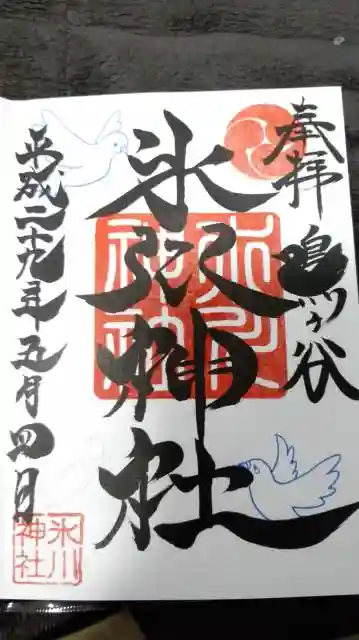 奉拝
鳩ヶ谷
氷川神社
氷川神社
平成二十九年五月四日
氷川
神社